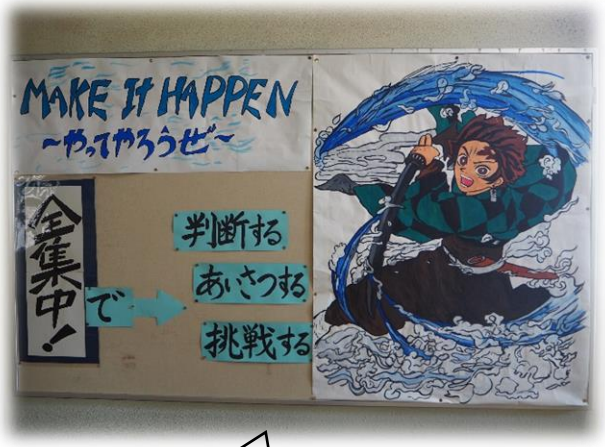 MAKE It HAPPEN
～やってやろうぜ～
全集中！
で
判断する
あいさつする
挑戦する